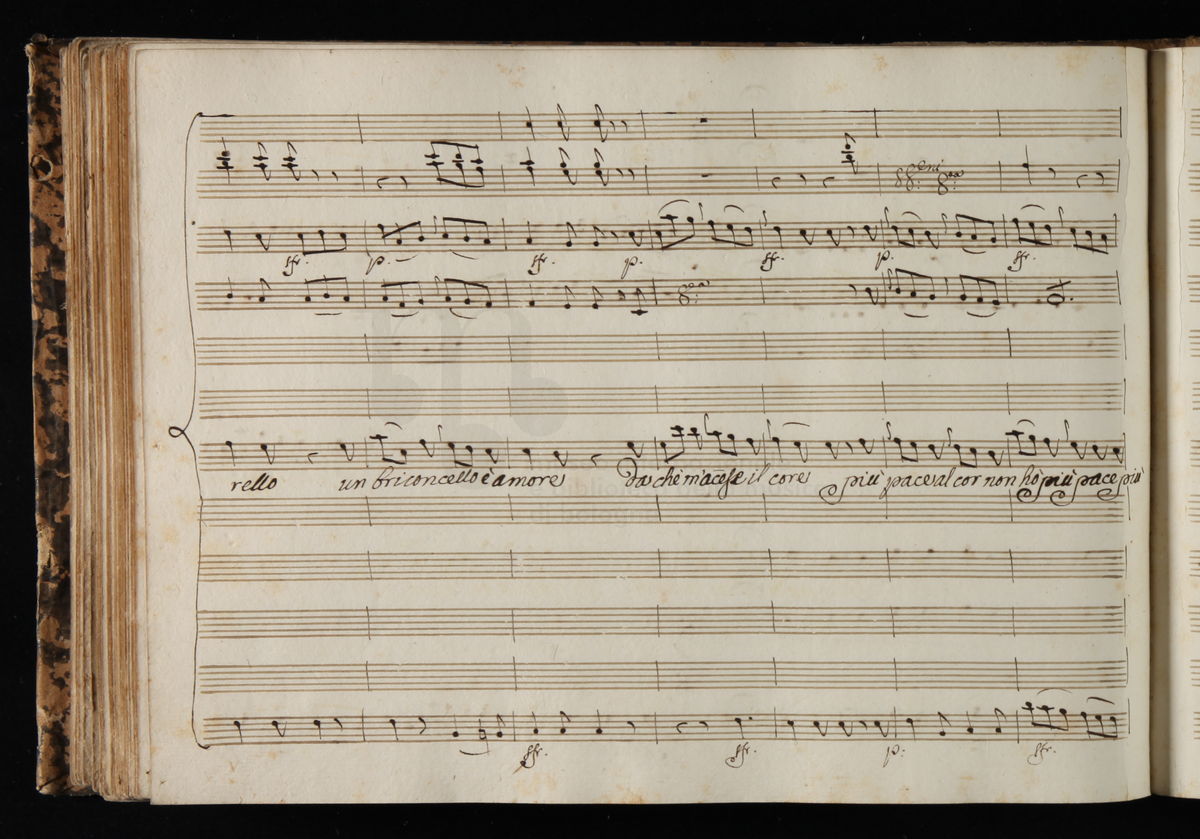 sfr. p. sfr. p. sfr. p. sfr.
rello un briconcello è amore da chè m'accese il core più pace al cor non hò più pace più
sfr. sfr. p. sfr.